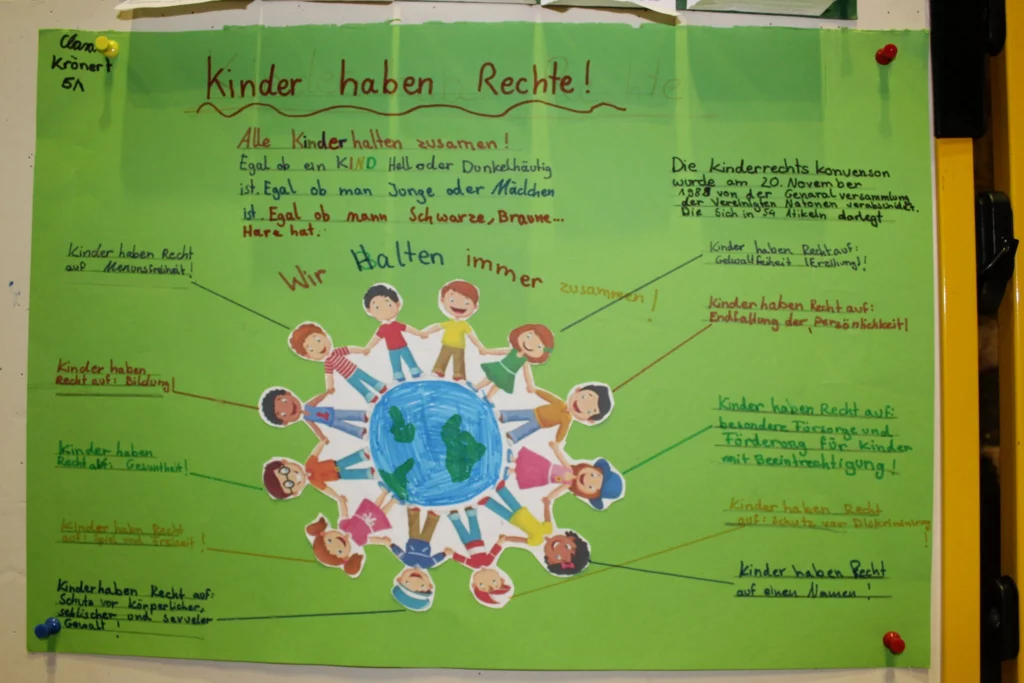 Clara
Krönert
5A
Kinder haben Rechte!
Alle Kinder halten zusamen!
Egal ob ein KIND Hell oder Dunkelhäutig
ist. Egal ob man Junge oder Mädchen
ist. Egal ob mann Schwarze, Braune...
Hare hat.
Die kinderrechts konvenson
wurde am 20. November
1989 von der Genaralversammlung
der Vereinigten Natonen verabschidet.
Die Sich in 54 Atikeln darlegt
Wir Halten immer zusammen!
Kinder haben Recht
auf Menunsfreiheit!
Kinder haben
Recht auf: Bildung!
Kinder haben
Recht auf: Gesuntheit!
Kinder haben Recht
auf: Spiel und Freiheit!
Kinder haben Recht auf:
Schutz vor körperlicher,
sehlischer und
Gewalt!
Kinder haben Recht auf:
Gewaltfeiheit (Erzihung)!
Kinder haben Recht auf:
Endfallung der persönlichkeit!
Kinder haben Recht auf:
besondere Försorge und
Förderung für Kinder
mit Beeintrechtigung!
Kinder haben Recht
auf: Schutz vor
Kinder haben Recht
auf einen Namen!